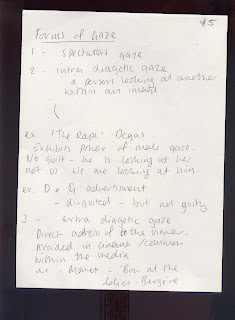 #5
Forms of Gaze
1 - Spectators gaze
2 - intra diagetic gaze
a person looking at another
within an image
ex. 'The Rape' Degas
Exhibits power of male gaze.
No guilt - he is looking at her
not us. We are looking at him
ex. D & G advertisment
- disguised - but not guilty
3 - extra diagetic gaze
Direct adress to the viewer.
Avoided in cinema / common
within the media
ex. Manet - 'Bar at the
Folies-Bergère